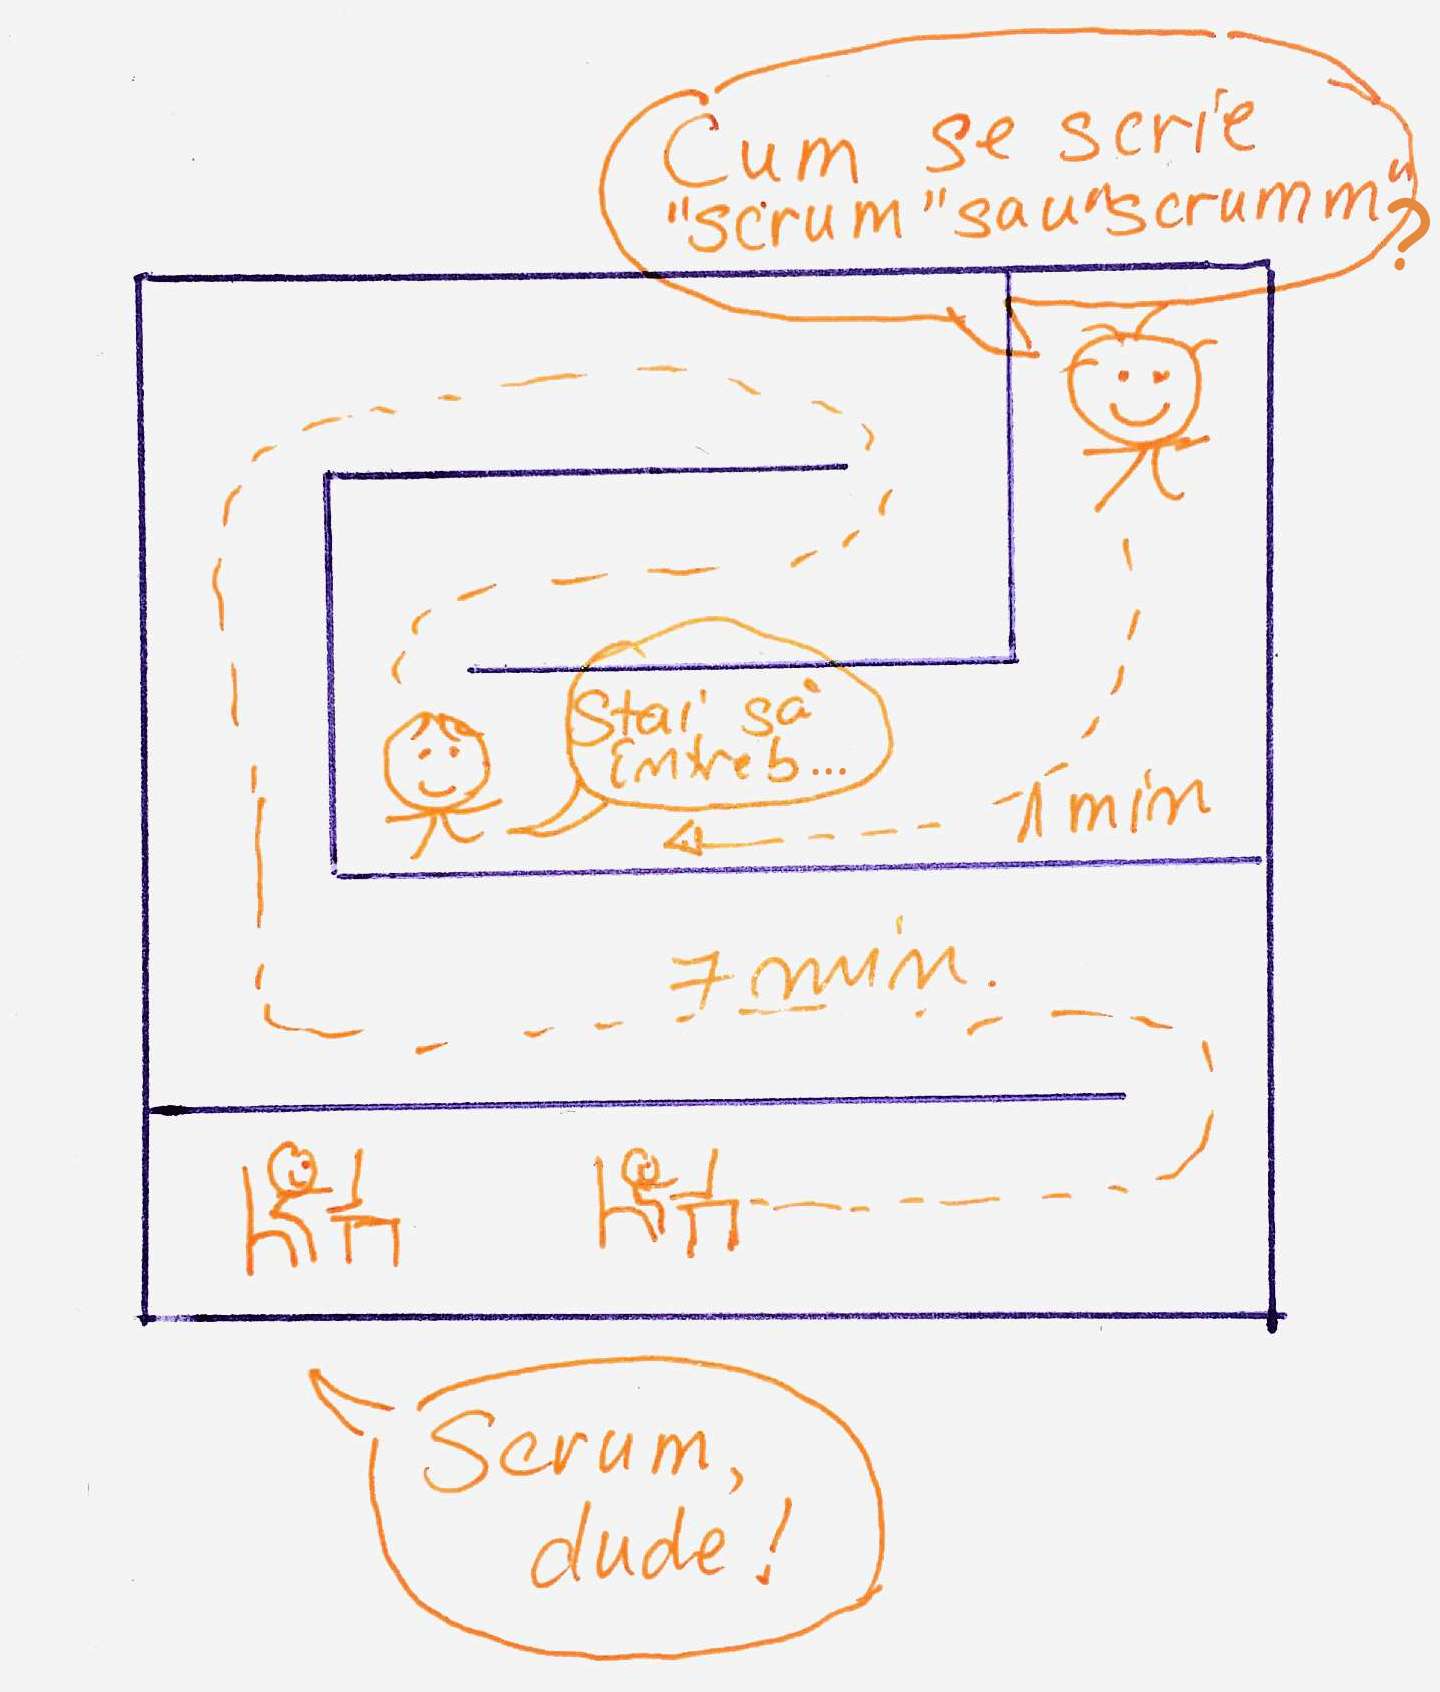 Cum se scrie
"scrum" sau "scrumm"?
Stai să
întreb...
1 min
7 min.
Scrum,
dude!